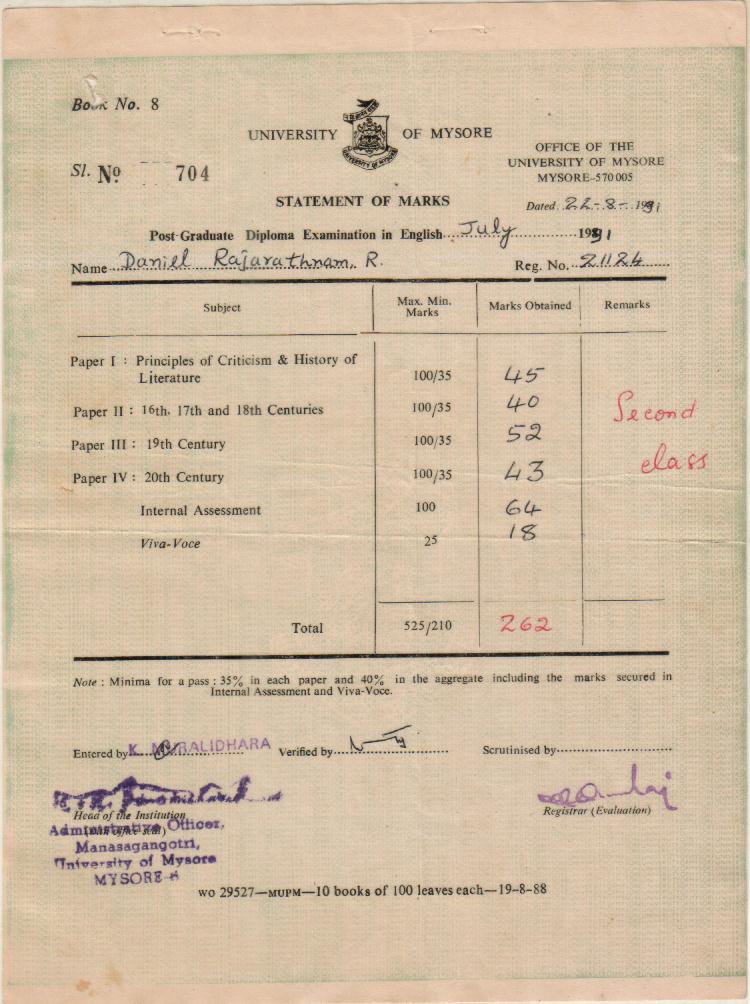 Book No. 8
UNIVERSITY OF MYSORE
UNIVERSITY OF MYSORE
OFFICE OF THE
UNIVERSITY OF MYSORE
MYSORE-570 005
Sl. No 704
STATEMENT OF MARKS
Dated 22-8-1991
Post-Graduate Diploma Examination in English July 1991
Name Daniel Rajarathnam, R. Reg. No. 21124
Subject Max. Min. Marks Marks Obtained Remarks
Paper I : Principles of Criticism & History of
Literature 100/35 45
Paper II : 16th, 17th and 18th Centuries 100/35 40
Second
Paper III : 19th Century 100/35 52
class
Paper IV : 20th Century 100/35 43
Internal Assessment 100 64
Viva-Voce 25 18
Total 525/210 262
Note : Minima for a pass : 35% in each paper and 40% in the aggregate including the marks secured in
Internal Assessment and Viva-Voce.
Entered by K. MURALIDHARA Verified by Scrutinised by
Head of the Institution
Registrar (Evaluation)
Administrative Officer,
Manasagangotri,
University of Mysore
MYSORE-6
WO 29527—MUPM—10 books of 100 leaves each—19-8-88